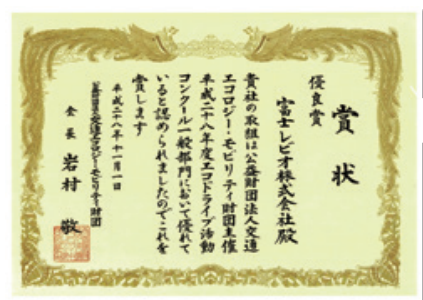 賞状
優良賞
富士レビオ株式会社殿
貴社の取組は公益財団法人交通
エコロジー・モビリティ財団主催
平成二十八年度エコドライブ活動
コンクール一般部門において優れて
いると認められましたのでこれを
賞します
平成二十八年十一月一日
公益財団法人交通エコロジー・モビリティ財団
会長 岩村 敬